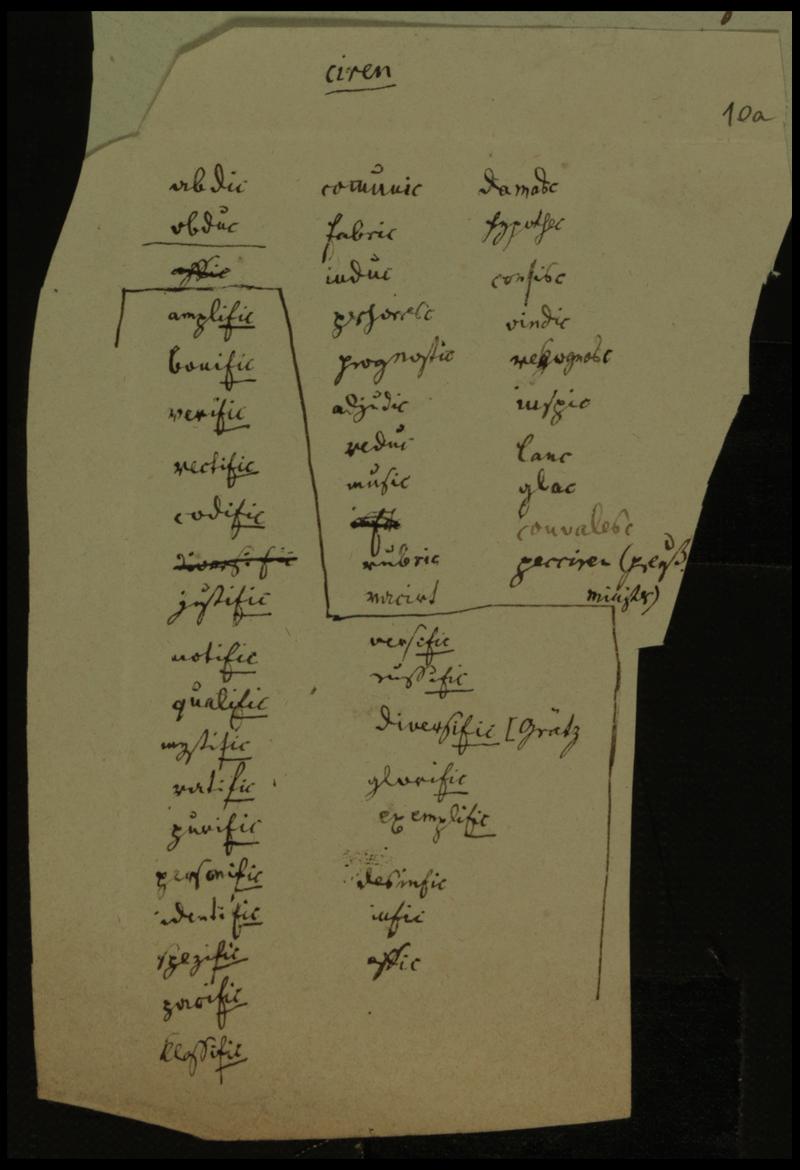 ciren
10a
abdic
obduc
affic
amplific
bonific
verific
rectific
codific
diversific
justific
notific
qualific
mystific
ratific
purific
personific
identific
spezific
pacific
klassific
comunic
fabric
induc
prognostic
adjudic
reduc
music
rubric
vacirt
versific
russific
diversific [Grätz
glorific
exemplific
desinfic
infic
affic
damasc
hypothec
confisc
vindic
rekognosc
inspic
lanc
glac
convalesc
pecciren (preuß.
minister)